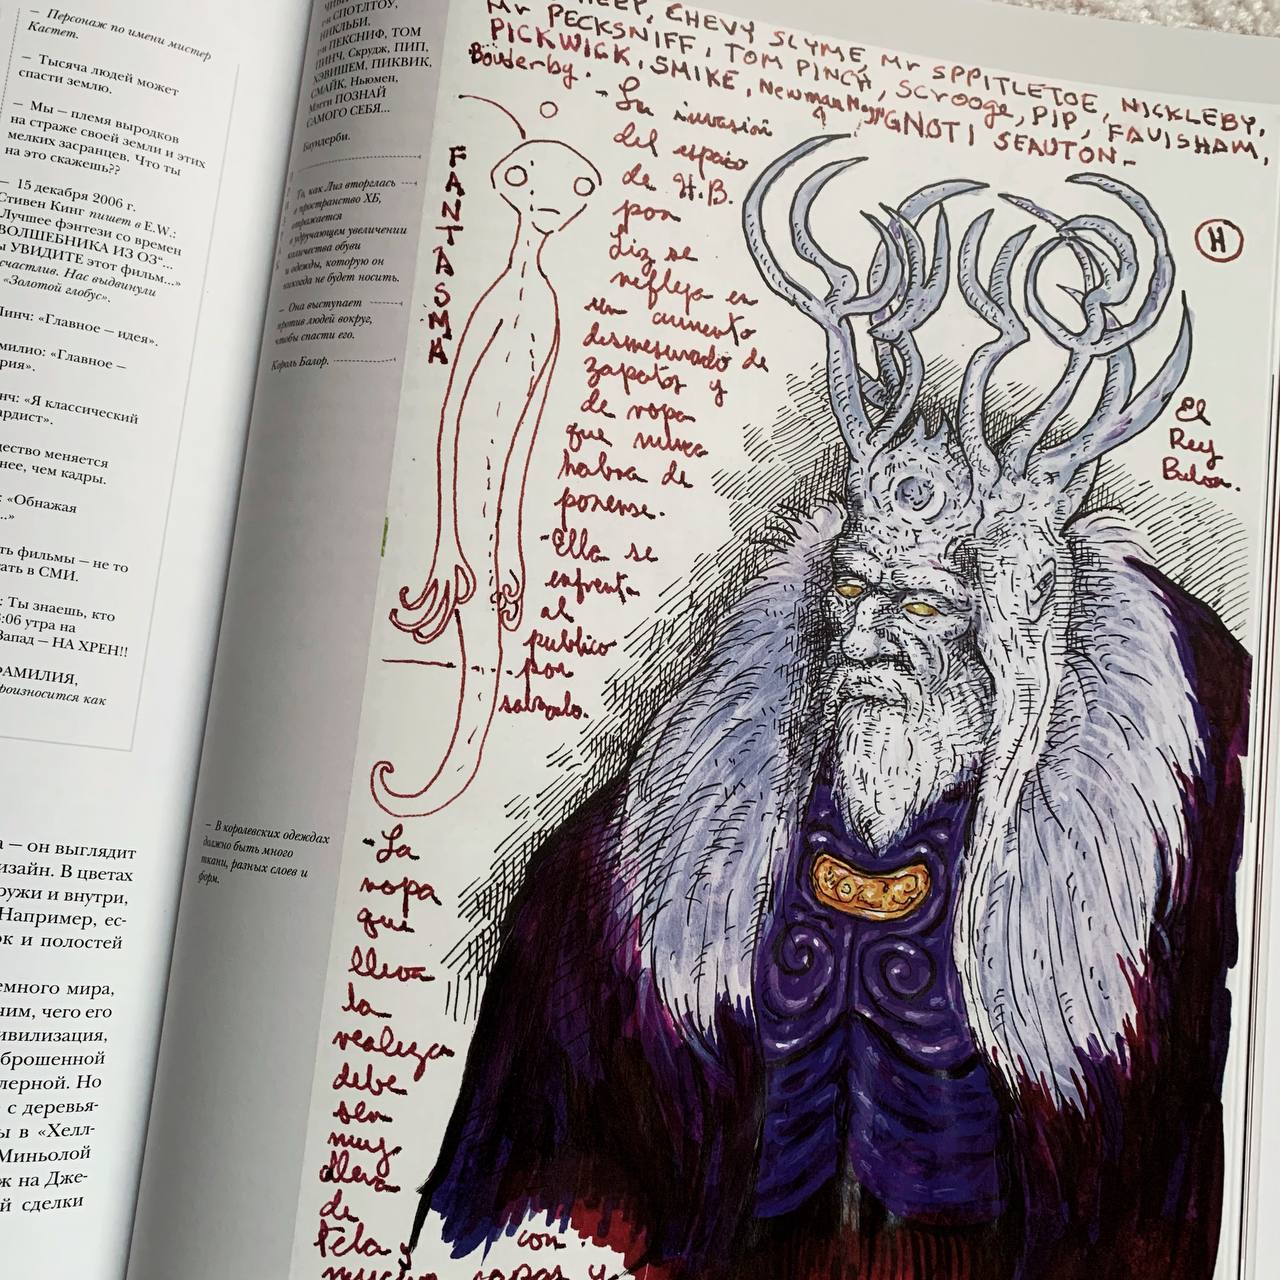 — Персонаж по имени мистер
Кастет.
— Тысяча людей может
спасти землю.
— Мы — племя выродков
на страже своей земли и этих
мелких засранцев. Что ты
на это скажешь??
— 15 декабря 2006 г.
Стивен Кинг пишет в E.W.:
«Лучшее фэнтези со времен
ВОЛШЕБНИКА ИЗ ОЗ“...
ы УВИДИТЕ этот фильм...»
счастлив. Нас выдвинули
«Золотой глобус».
Линч: «Главное — идея».
милио: «Главное —
рия».
нч: «Я классический
ардист».
щество меняется
нее, чем кадры.
: «Обнажая
...»
ть фильмы — не то
ать в СМИ.
: Ты знаешь, кто
:06 утра на
Запад — НА ХРЕН!!
РАМИЛИЯ,
роизносится как
а — он выглядит
изайн. В цветах
ружи и внутри,
Например, ес-
ок и полостей
емного мира,
чим, чего его
ивилизация,
брошенной
лерной. Но
с деревья-
ы в «Хелл-
Миньолой
ж на Дже-
й сделки
СПОТЛТОУ,
НИКЛЬБИ,
ПЕКСНИФ, ТОМ
ПИНЧ, Скрудж, ПИП,
ХЭВИШЕМ, ПИКВИК,
СМАЙК, Ньюмен,
Мэгги ПОЗНАЙ
САМОГО СЕБЯ...
Баундерби.
— То, как Лиз вторглась
в пространство ХБ,
отражается
в удручающем увеличении
количества обуви
и одежды, которую он
никогда не будет носить.
— Она выступает
против людей вокруг,
чтобы спасти его.
Король Балор.
— В королевских одеждах
должно быть много
ткани, разных слоев и
форм.
HEEP, CHEVY SLYME, Mr SPPITLETOE, NICKLEBY,
Mr PECKSNIFF, TOM PINCH, SCROOGE, PIP, FAVISHAM,
PICKWICK, SMIKE, Newman GNOTI SEAUTON-
Bouderby.
FANTASMA
- La invasión
del espacio
de H.B.
por
Liz se
refleja en
un aumento
desmesurado de
zapatos y
de ropa
que nunca
habra de
ponerse.
- Ella se
enfrenta
al
publico
por
salvarlo.
H
El
Rey
Balor.
- La
ropa
que
lleva
la
realeza
debe
ser
muy
llena
de
tela y con
mucha capas y